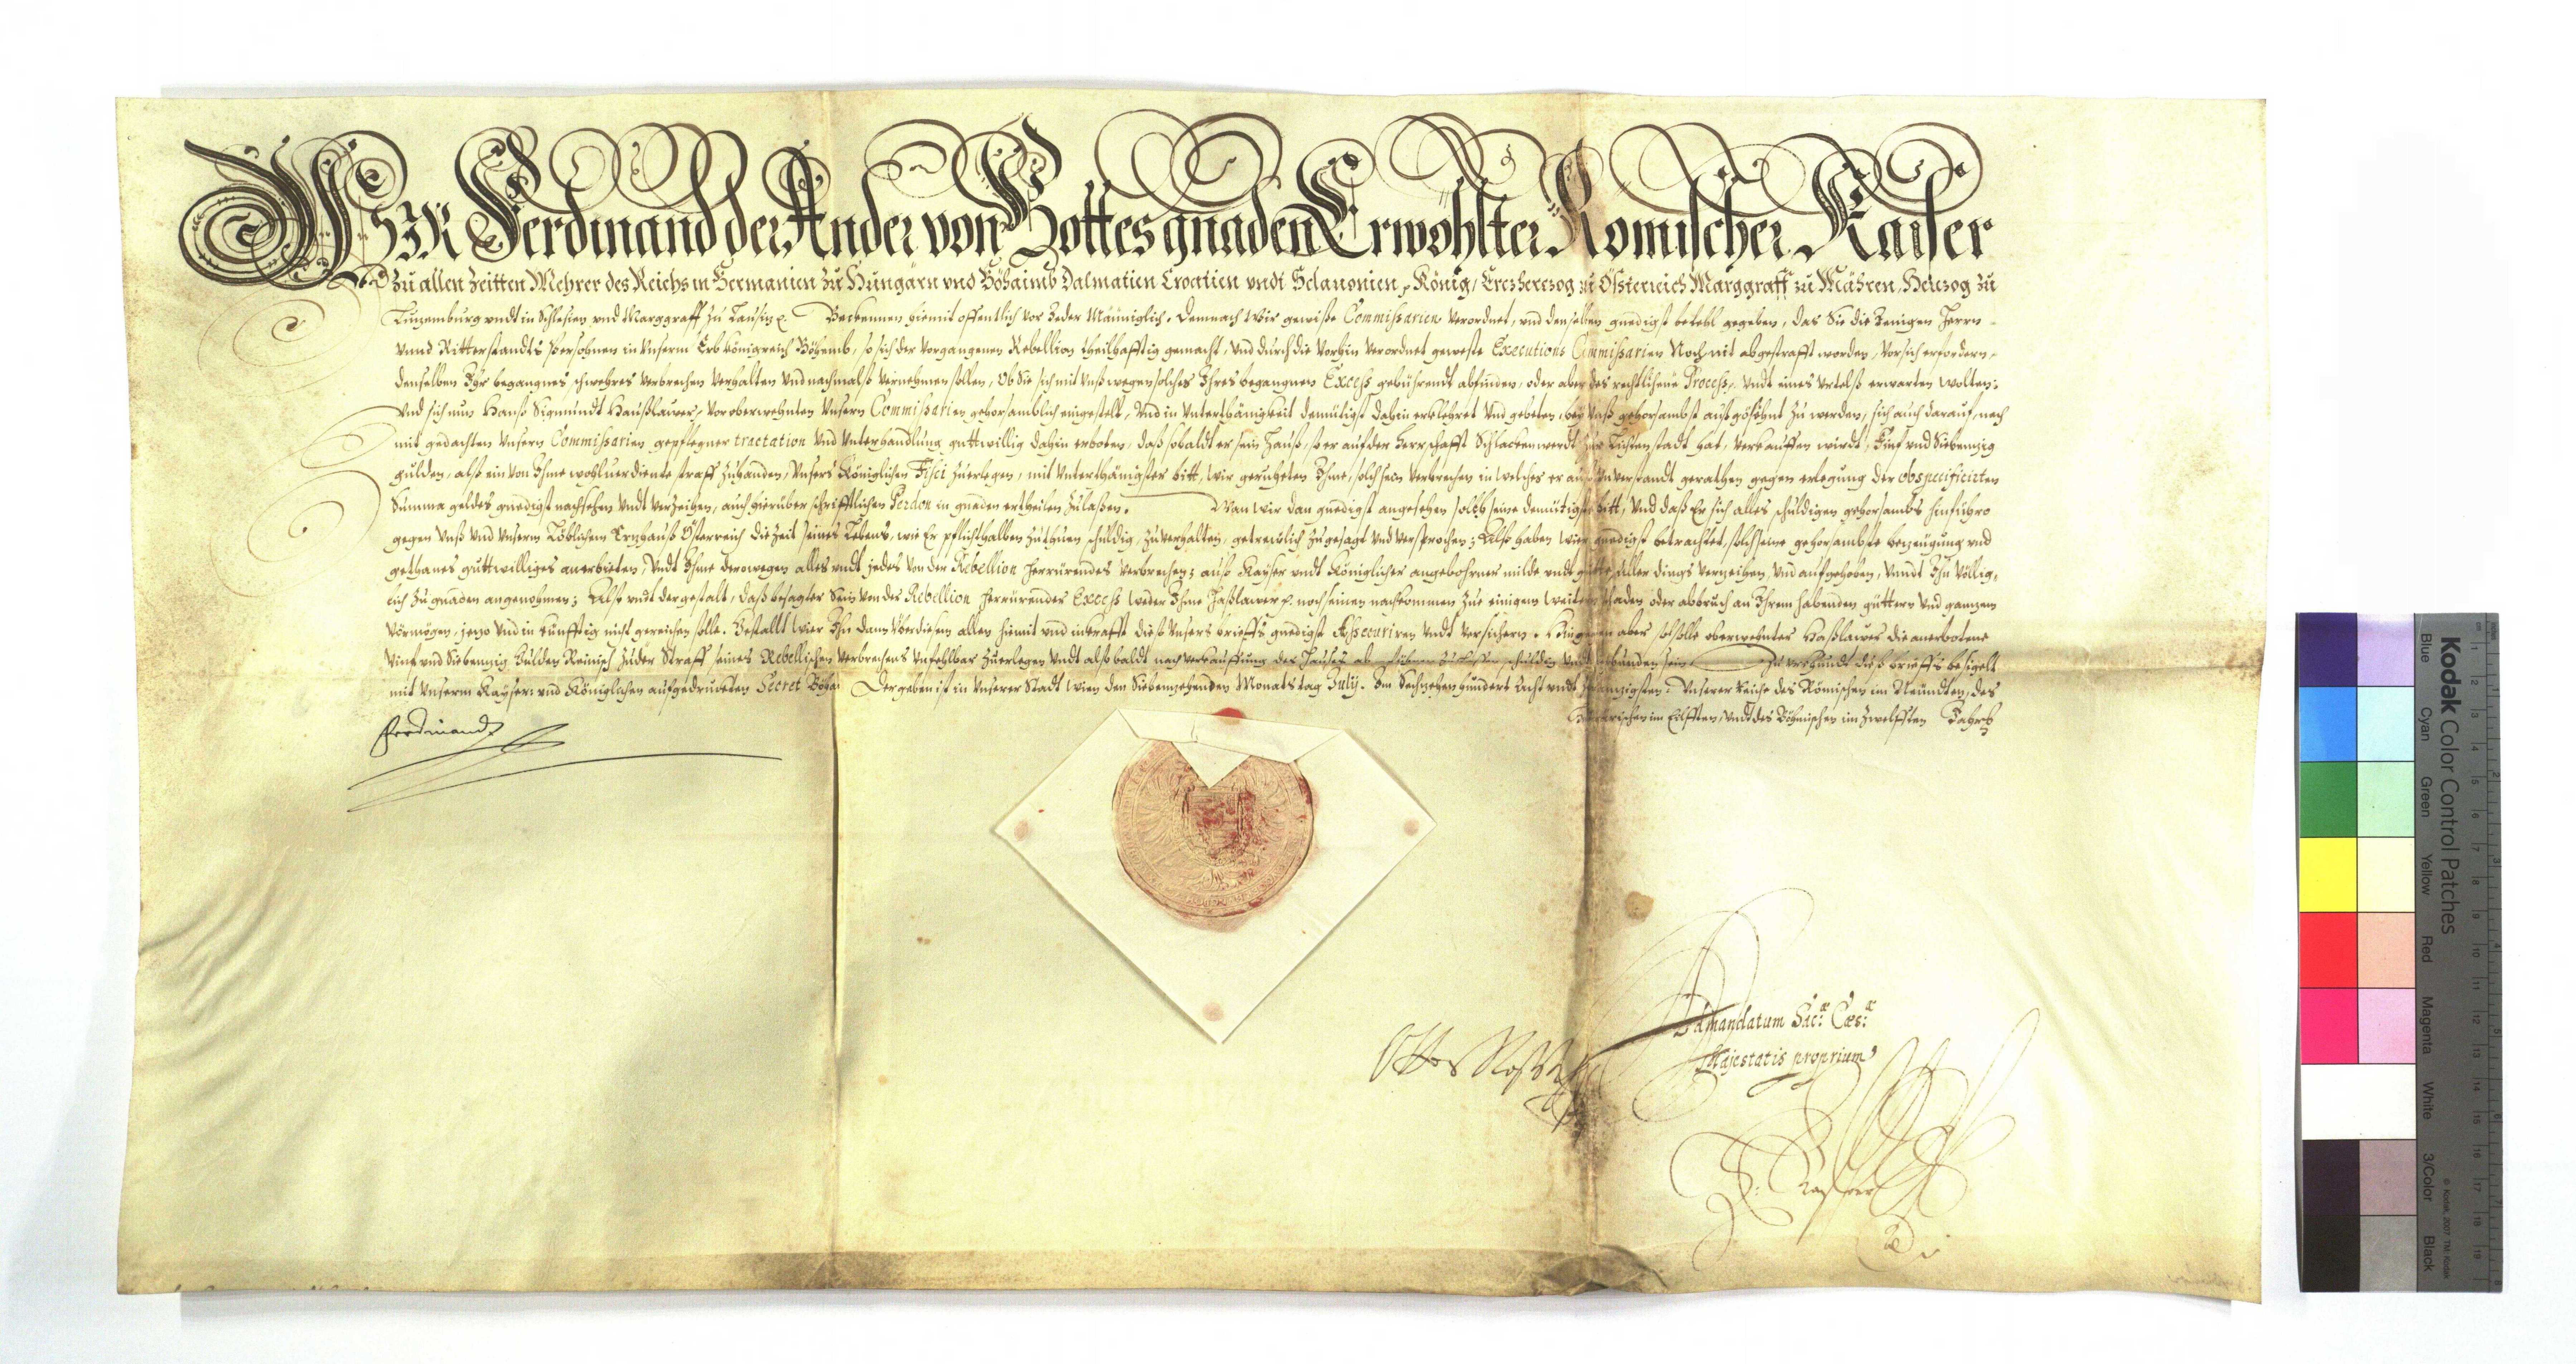 WIR Ferdinand der Ander von Gottes gnaden Erwöhlter Römischer Kaiser
Zu allen Zeitten Mehrer des Reichs in Germanien zu Hungarn vnd Böhaimb Dalmatien Croatien vndt Sclauonien König, Erczherczog zu Össterreich Marggraff zu Mähren, Herczog zu
Luczemburg vndt in Schlesien vnd Marggraff zu Lausitz. Beckennen hiemit offentlich vor Jeder Männiglich. Demnach Wir gewiße Commissarien verordnet, vnd denselben gnedigst befehl gegeben, das Sie die Jenigen Herrn
vnnd Ritterstandts Persohnen in Vnserm Erb Königreich Böhemb, so sich der vorgangenen Rebellion theilhafftig gemacht, vnd durch die vorhin verordnet geweste Executions Commissarien Noch nit abgestrafft worden, vor sich erfordern,
denselben Ihr begangnes schwehres verbrechen verhalten vnd nachmalß vernehmen sollen, Ob Sie sich mit Vnß wegen solches Ihres begangnen Excess gebührendt abfinden, oder aber des rechtlichene Process, vndt eines Vrtelß erwarten wolten.
Vnd sich nun Hanß Sigmundt Haußlawer, vor oberwehnten Vnsern Commissarien gehorsamblich eingestelt, vnd in Vnterthänigkeit demütigst dahin erklehret vnd gebeten, bey Vnß gehorsambst außgesöhnt zu werden, sich auch darauf, nach
mit gedachten Vnsern Commissarien gepflegner tractation vnd Vnterhandlung guttwillig dahin erboten, daß sobaldt er sein Hauß, so er auf der Herrschafft Schlackenwerdt zur Lichtenstadt hat, verkauffen wirdt, Fünf vnd Siebenzig
gulden, alß ein von Ihme wohluerdiente straff zuhanden, Vnsers Königlichen Fisci zuerlegen, mit Vnterthänigster bitt, Wir geruheten Ihme, solch sein verbrechen in welches er auß Vnverstandt gerathen gegen erlegung der obspecificirten
Summa geldes gnedigst nachsehen vndt verzeihen, auch hierüber schrifftlichen Perdon in gnaden ertheilen zulaßen. Wan Wir dan gnedigst angesehen solch seine demütigste bitt, vnd daß Er sich alles schuldigen gehorsambs hinführo
gegen Vnß vnd Vnserm Löblichem Erczhauß Österreich die Zeit seines Lebens, wie Er pflichthalben zuthuen schuldig, zuuerhalten, getrewlich zugesagt vnd versprochen; Alß haben Wier gnedigst betrachtet, solch seine gehorsambste bezeugung vnd
gethanes guttwilliges anerbieten, vndt Ihme derowegen alles vndt jedes von der Rebellion herrürendes verbrechen; auß Kayser vndt Königlicher angebohrner milde vndt gütte, aller dings verzeihen, vnd aufgehoben, vnndt Ihn völlig,
lich zu gnaden angenohmen; Also vndt dergestalt, daß besagter Sein von der Rebellion herrürender Excess weder Ihme Haßlawer noch seinen nachkommen zue einigem weitern schaden oder abbruch an Ihrem habenden güttern vnd ganczem
vörmögen, jeczo vnd in künfftig nicht gereichen solle. Gestallt Wier Ihn dann vberdiesem allen hiemit vnd in krafft dieß Vnsers brieffs gnedigst Assecuriren vndt versichern. Hingegen aber solle oberwehnter Haßlawer die anerbotene
Vinf vnd Siebenzig Gulden Reinisch zu der Straff seines Rebellischen verbrechens Vnfehlbar zuerlegen vndt alßbaldt nach verkauffung des Hauses schuldig vndt verbunden sein Zu vrkundt dieß brieffs besigelt
mit Vnserm Kayser: vnd Königlichen aufgedruckten Secret Der geben ist in Vnserer Stadt Wien den Siebenzehenden Monats tag July. Im Sechzehenhundert Acht vndt zwanzigsten. Vnserer Reiche des Römischen im Neündten, des
Hungarischen im Eilfften, vndt des Böhmischen im zwelfften Jahrs
Ferdinand
Ad mandatum Sac: Cæs:
Majestatis proprium
Otto Nostitz
Kodak Color Control Patches
Blue
Cyan
Green
Yellow
Red
Magenta
White
3/Color
Black
© Kodak, 2007 TM: Kodak